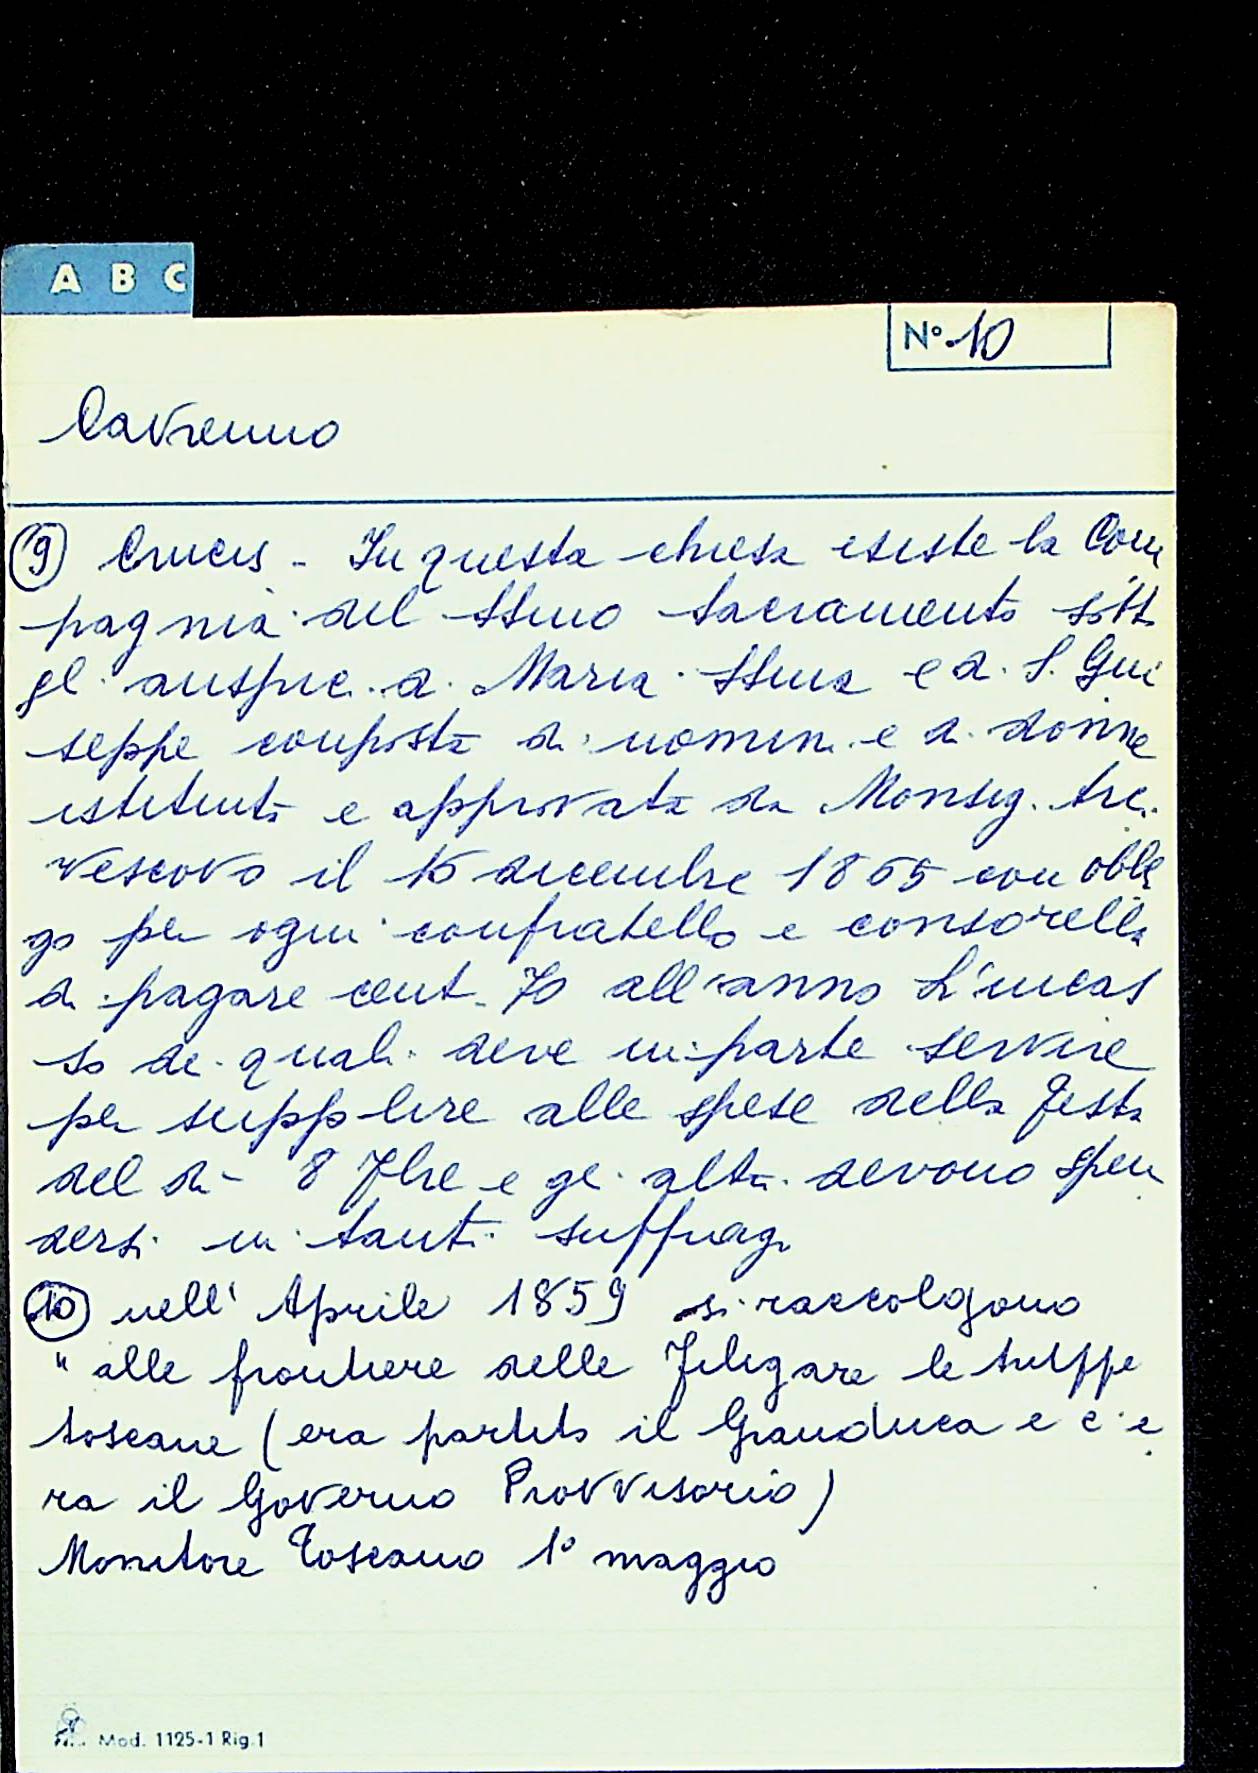 A B C
N° 10
Cavrenno
(9) Crucis - In questa chiesa esiste la Com
pagnia del SSmo Sacramento sott
gl auspic. di Maria SSma e di S. Giu
seppe composta di uomini e di donne
istituita e approvata da Monsig. Arci
vescovo il 16 dicembre 1865 con obbli
go per ogni confratello e consorella
di pagare cent. 70 all'anno L'incas
so dei quali deve in parte servire
per supplire alle spese della festa
del dì 8 7bre e gli altri devono spen
dersi in tanti suffragi
(10) nell' Aprile 1859 si raccolgono
" alle frontiere delle Filigare le truppe
toscane (era partito il Granduca e c'e
ra il Governo Provvisorio)
Monitore Toscano 1° maggio
Mod. 1125-1 Rig.1